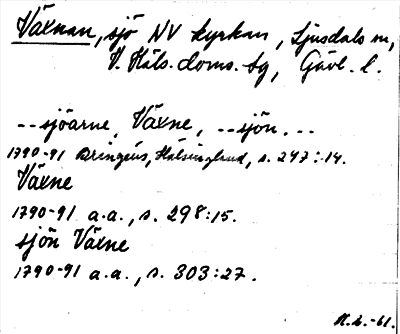 Växnan, sjö NV kyrkan, Ljusdals sn,
V. Häls. doms. tg, Gävl. l.
--sjöarne, Växne, --sjön...
1790-91 Bringéus, Hälsingland, s. 247:14.
Växne
1790-91 a.a., s. 298:15.
sjön Växne
1790-91 a.a., s. 303:27.
-61.